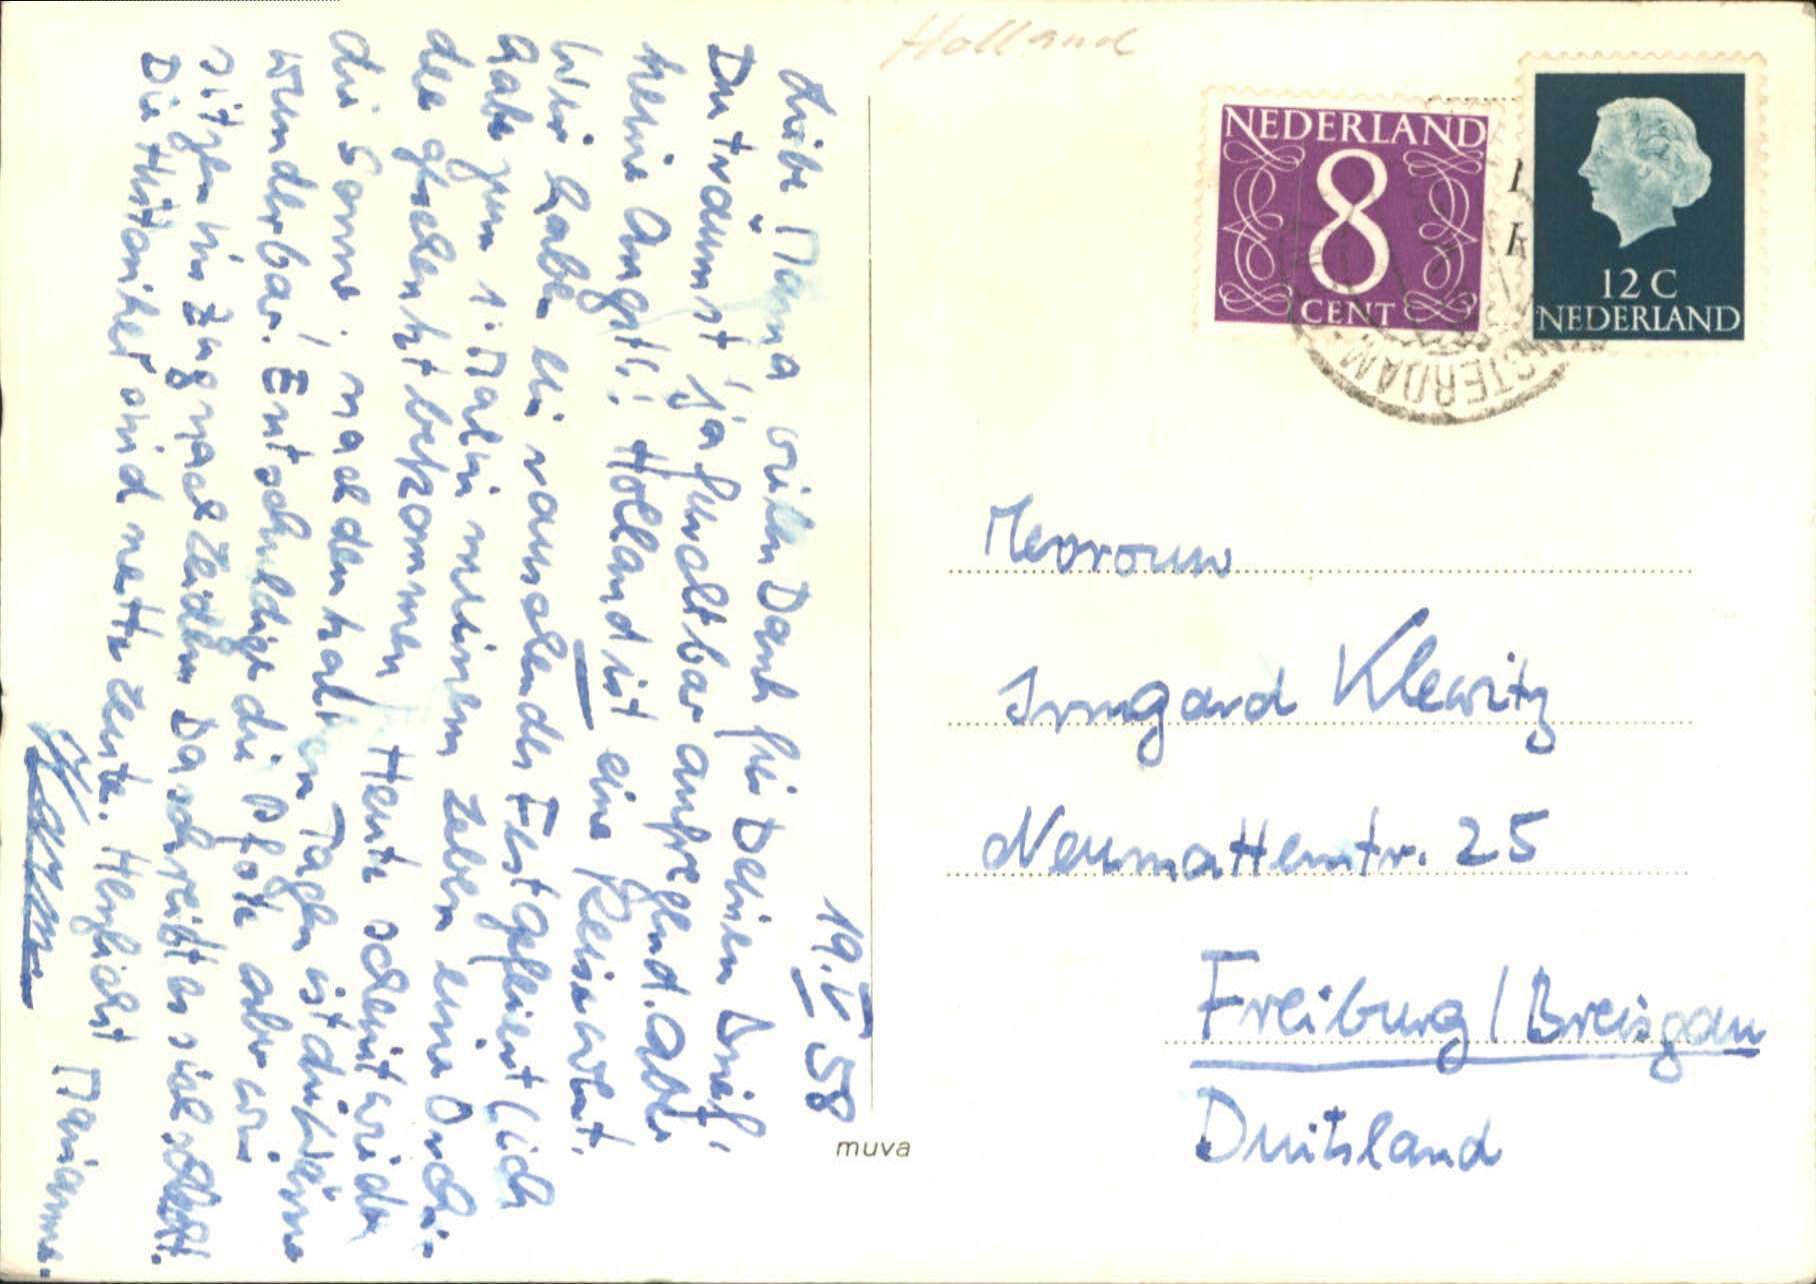 19. V. 58
Liebe Mama vielen Dank für Deinen Brief,
Du träumst ja furchtbar aufregend. Aber
keine Angst!! Holland ist eine Reise wert.
Wir haben ein rauschendes Fest gefeiert (ich
habe zum 1. Mal in meinem Leben eine Orchi-
dee geschenkt bekommen) Heute scheint wieder
die Sonne, nach den kalten Tagen ist die Wärme
wunderbar. Entschuldige die Pfote aber wir
sitzen im Zug nach Leiden Da schreibt es sich schlecht.
Die Mitarbeiter sind nette Leute. Herzlichst Marianne.
Holland
NEDERLAND
8
CENT
12 C
NEDERLAND
AMSTERDAM
Mevrouw
Irmgard Klewitz
Neumattenstr. 25
Freiburg / Breisgau
Duitsland
muva